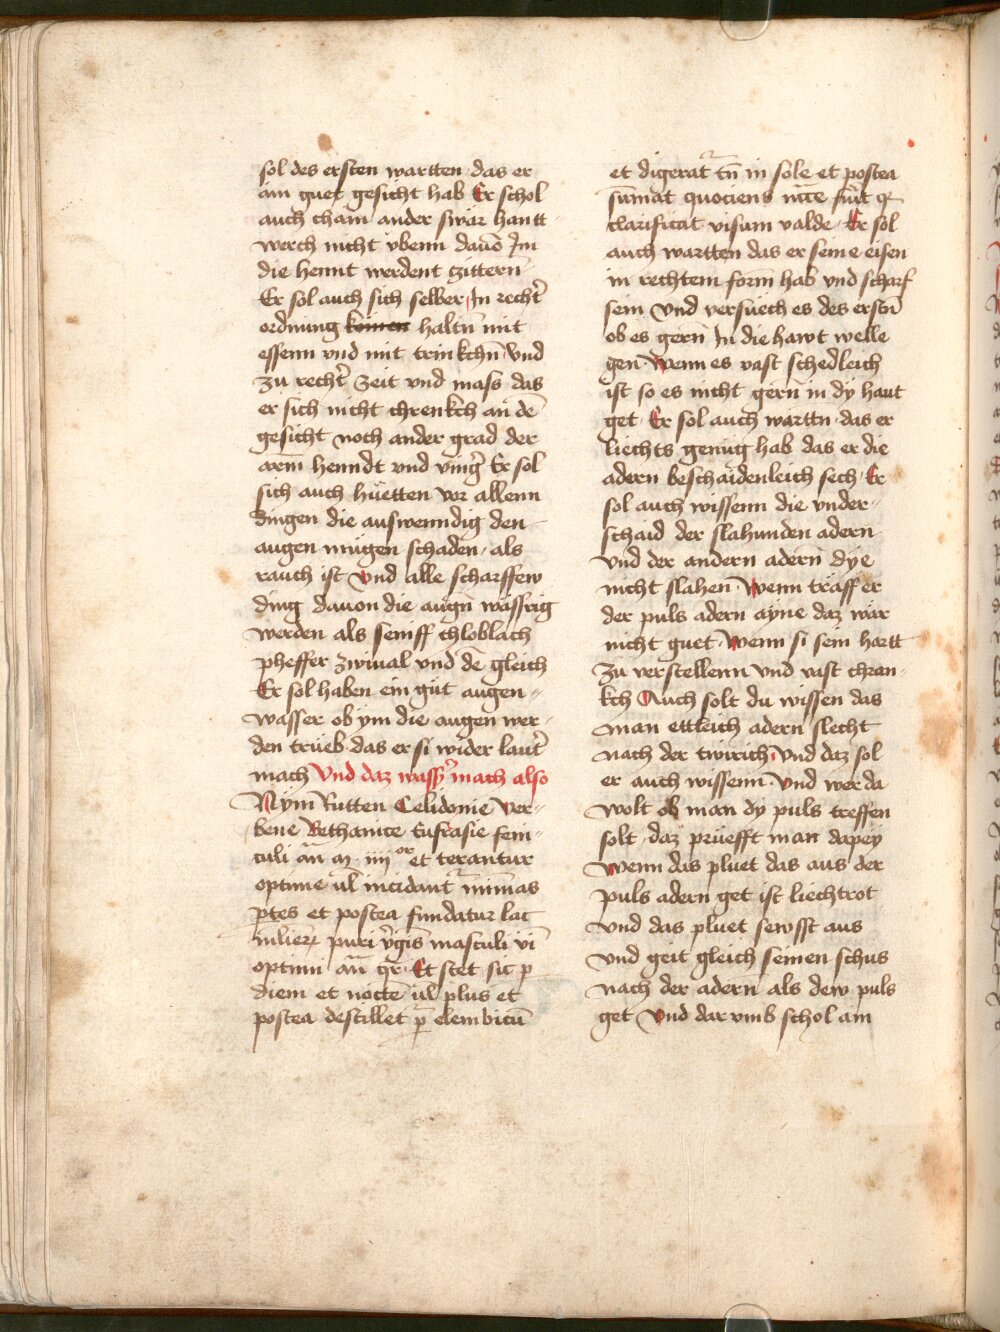 sol des ersten wartten das er
ain guet gesicht hab Er schol
auch chain ander swär hantt
werch nicht vbenn dauō Im
die hennt werdent czittern
Er sol auch sich selber In recht͛
ordnung komen haltn̄ mit
essenn vnd mit trinkchn̄ vnd
zu recht͛ zeit vnd mass das
er sich nicht chrenkch an dē
gesicht noch ander grad der
arm̄ henndt vnd ving͛ Er sol
sich auch hüetten vor allenn
dingen die auswenndig den
augen mügen schaden als
rauch ist vnd alle scharffew
ding dauon die augn̄ wässrig
werden als seniff chloblach
pheffer zwiual vnd dē gleich
Er sol haben ein güt augen
wasser ob ym die augen wer
den trüeb das er si wider laut͛
mach Vnd daz wass͛ mach also
Nym Rutten Celidonie Ver
bene Bethanice Eufrasie feni
culi an̄ m iiij or et terantur
optime ul̄ incidant͛ minimas
p̄tes et postea fundatur lac
mulier͛ pueri v͛gīs masculi vī
optimi an̄ qr Et stet sic p̄
diem et noctē ul̄ plus et
postea destillet p̄ elembicū
et digerat͛ tn̄ in sole et postea
sūmat quociens nccē fūit q
clarificat visum valde Er sol
auch wartten das er seine eisen
in rechtem form̄ hab vnd scharf
sein vnd versuech es des erstn̄
ob es gern̄ In die hawt welle
gen Wenn es vast schedleich
ist so es nicht gern̄ in dy haut
get Er sol auch wartt̄n das er
liechts genüg hab das er die
adern beschaidenleich sech Er
sol auch wissenn die vnder
schaid der slahunden adern
vnd der andern adern̄ dye
nicht slahen Wenn träff er
der puls adern ayne daz wär
nicht guet Wenn si sein hartt
zu verstellenn vnd vast chran
kch Auch solt du wissen das
man ettleich adern slecht
nach der twirich vnd daz sol
er auch wissenn vnd wer da
wolt ob man dy puls treffen
solt daz prüefft man dapey
Wenn das pluet das aus der
puls adern get ist liechtrot
vnd das pluet sewsst aus
vnd geit gleich seinen schus
nach der adern als dew puls
get vnd dar vmb schol ain